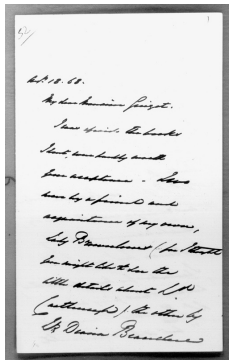 Ap. 18. 68.
My dear Monsieur Guizot.
I was afraid the books
I sent, were hardly worth
your acceptance -
were by a friend and
acquaintance of my own,
Lady Brownlow (for I thought
you might like to see the
little details about Ld
) the other by